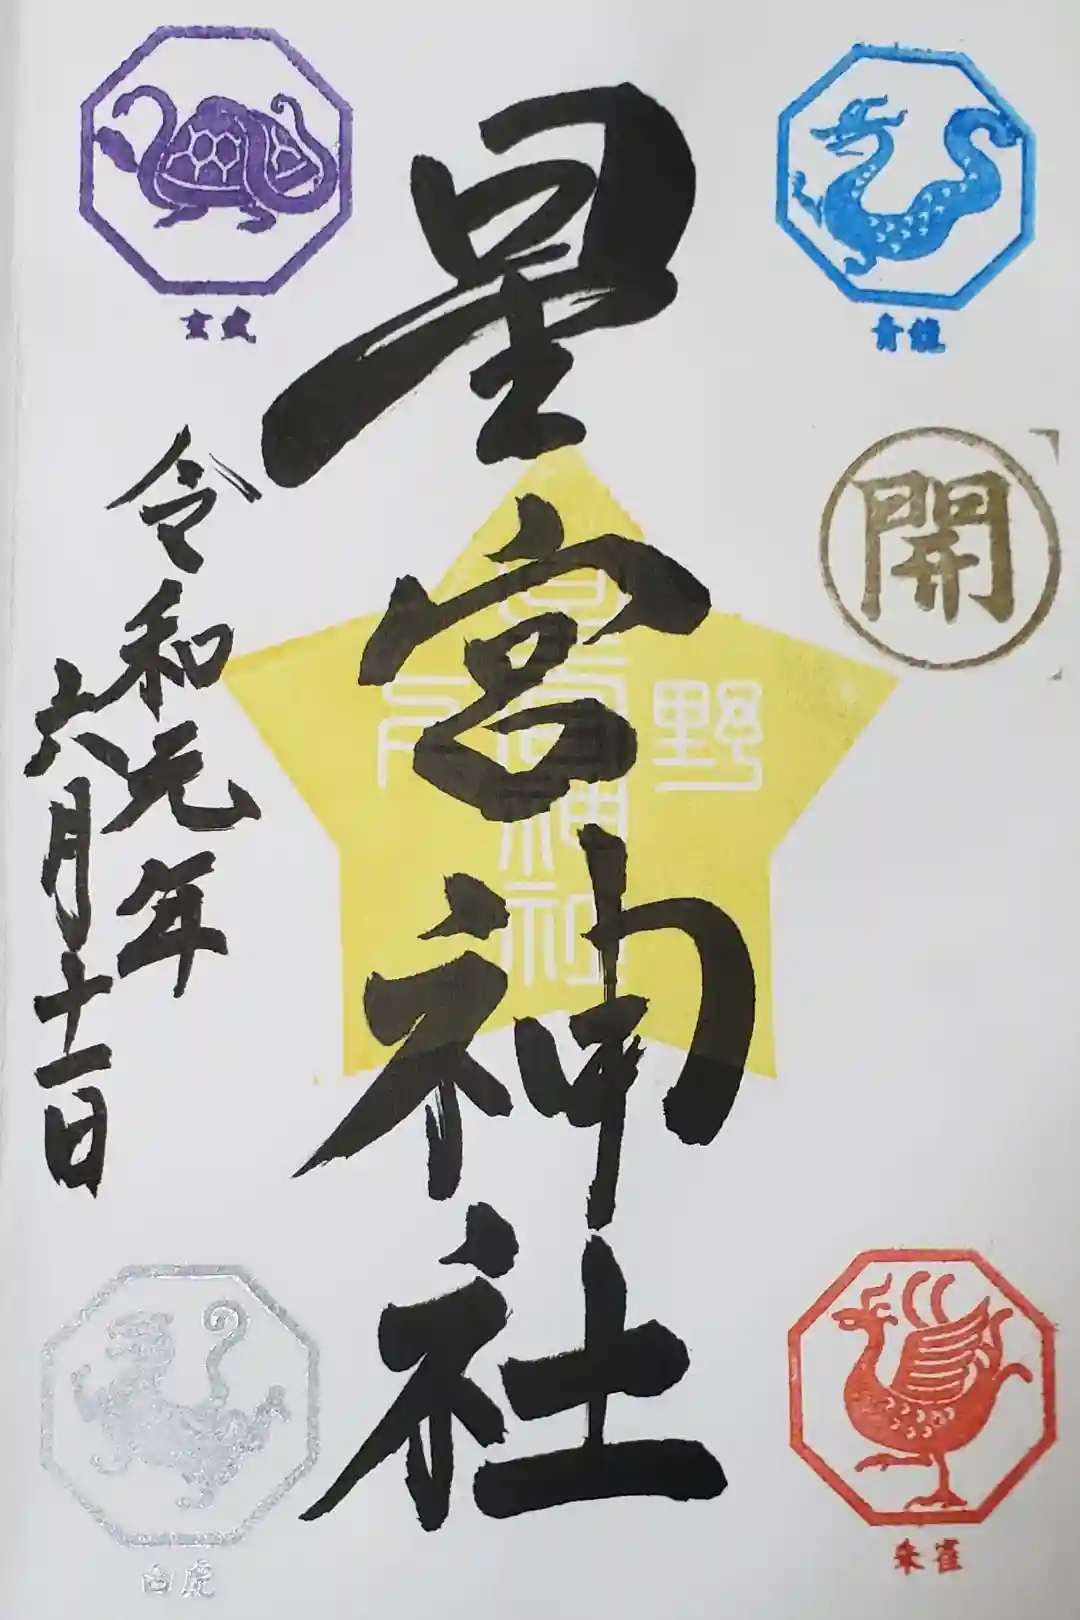 青龍
開
朱雀
星宮神社
野
星宮神社
令和元年
六月十一日
玄武
白虎